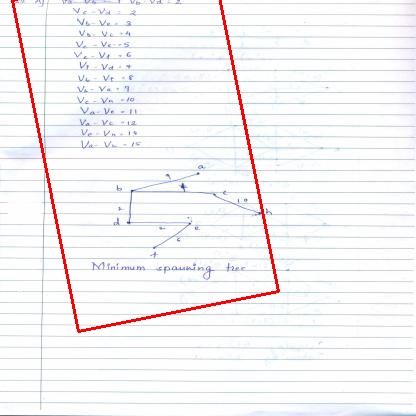 Vb - Vd = 2
Vc - Vd = 2
Vb - Ve = 3
Vb - Vc = 4
Vc - Ve = 5
Ve - Vf = 6
Vf - Vd = 7
Vb - Vf = 8
Vb - Va = 9
Vc - Vh = 10
Va - Ve = 11
Va - Vc = 12
Ve - Vh = 14
Va - Vh = 15
a
9
b
4
c
10
h
2
d
2
e
6
f
Minimum spanning tree